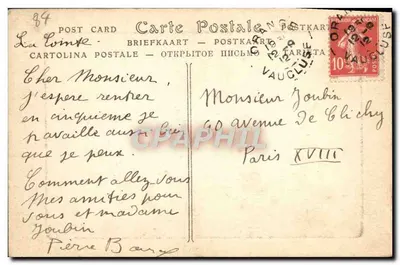 84
POST CARD
Carte Postale
BRIEFKAART - POSTKAART
CARTOLINA POSTALE - ОТКРЫТОЕ ПИСЬМО
ORANGE
VAUCLUSE
ORANGE
VAUCLUSE
10
La Comte
Cher Monsieur,
J'espere rentrer
en cinquième je
travaille aussi bien
que je peux.
Comment allez vous
Mes amitiés pour
vous et madame
Joubin
Pierre
Monsieur Joubin
60 Avenue de Clichy
Paris XVIII
CPAPHIL